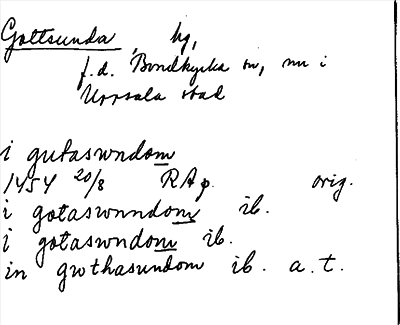 Gottsunda, hg,
f.d. Bondkyrka sn, nu i
Uppsala stad
i gutaswndom
1454 20/8 RAp. orig.
i gotaswnndom ib.
i gotaswndom ib.
in gwthasundom ib. a.t.